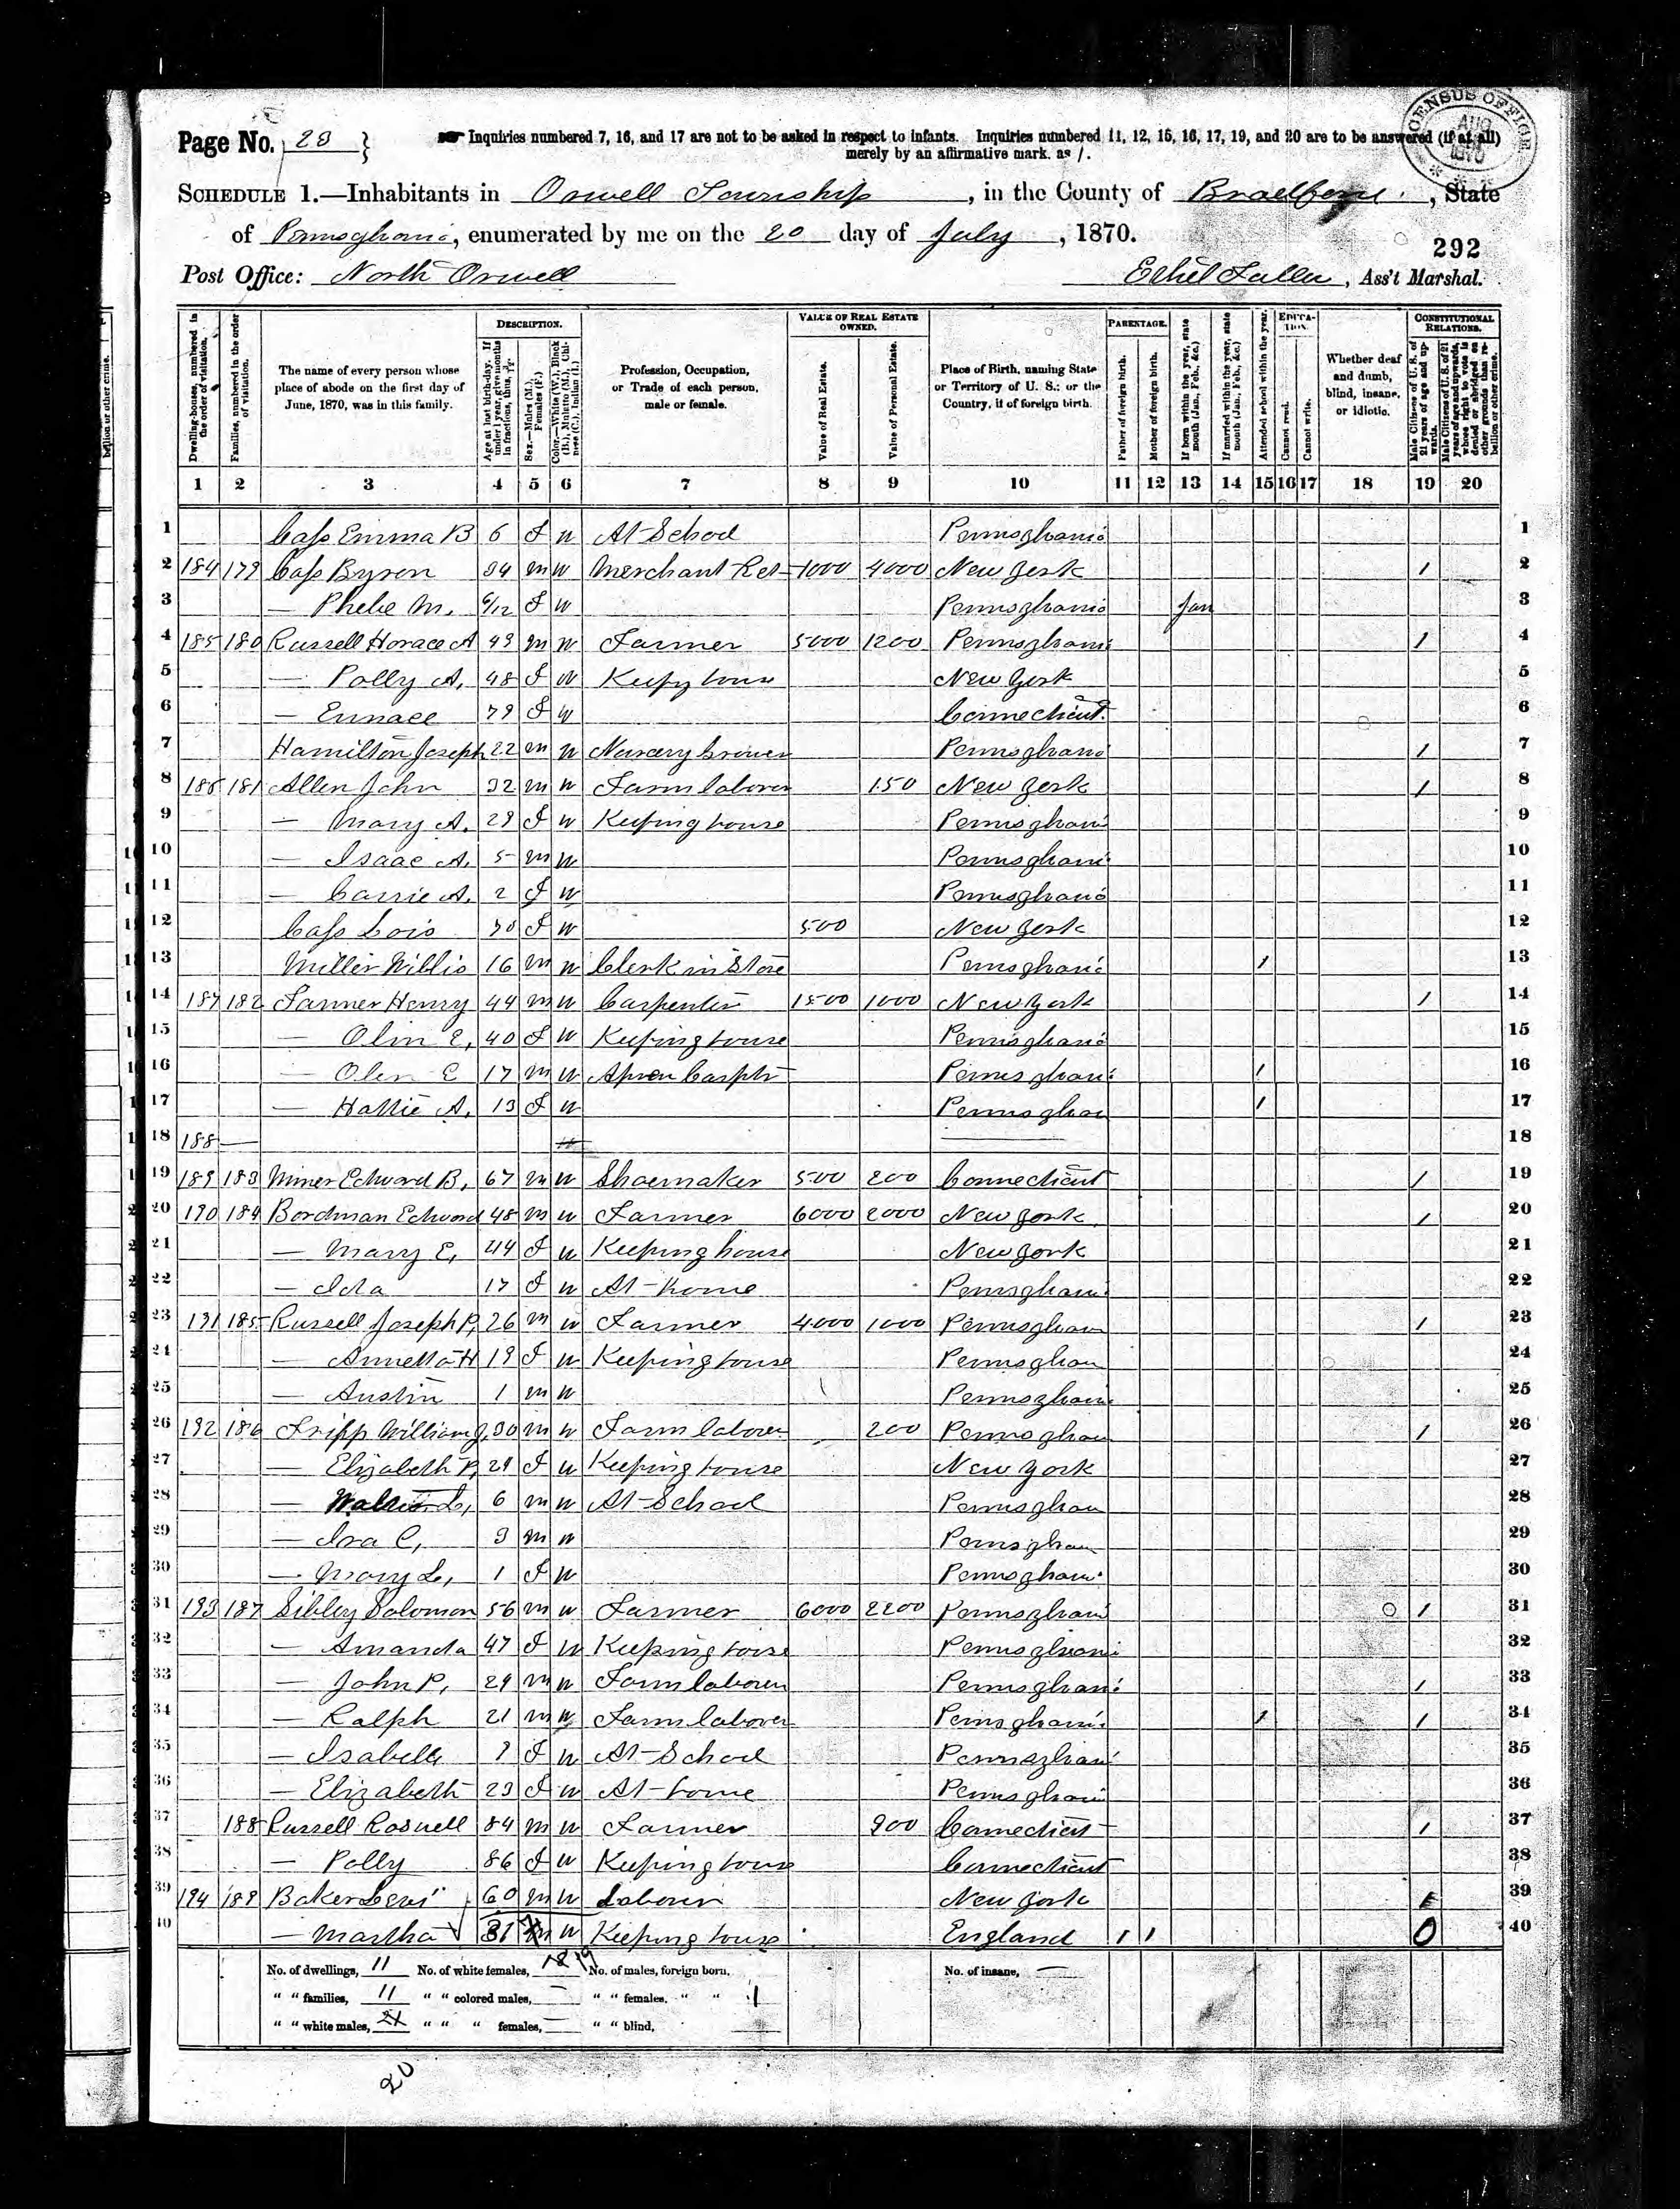 Page No. 28
Inquiries numbered 7, 16, and 17 are not to be asked in respect to infants. Inquiries numbered 11, 12, 15, 16, 17, 19, and 20 are to be answered (if at all)
merely by an affirmative mark, as /.
CENSUS OFFICE AUG 1870
SCHEDULE 1.—Inhabitants in Orwell Township, in the County of Bradford, State
of Pennsylvania, enumerated by me on the 20 day of July, 1870.
292
Post Office: North Orwell
Ethel Fuller, Ass't Marshal.
Dwelling-houses, numbered in the order of visitation.
Families, numbered in the order of visitation.
The name of every person whose place of abode on the first day of June, 1870, was in this family.
DESCRIPTION.
Age at last birth-day. If under 1 year, give months in fractions, thus, 3/12
Sex.—Males (M.), Females (F.)
Color.—White (W.), Black (B.), Mulatto (M.), Chinese (C.), Indian (I.)
Profession, Occupation, or Trade of each person, male or female.
VALUE OF REAL ESTATE OWNED.
Value of Real Estate.
Value of Personal Estate.
Place of Birth, naming State or Territory of U. S.; or the Country, if of foreign birth.
PARENTAGE.
Father of foreign birth.
Mother of foreign birth.
If born within the year, state month (Jan., Feb., &c.)
If married within the year, state month (Jan., Feb., &c.)
Attended school within the year.
EDUCATION.
Cannot read.
Cannot write.
Whether deaf and dumb, blind, insane, or idiotic.
CONSTITUTIONAL RELATIONS.
Male Citizens of U. S. of 21 years of age and upwards.
Male Citizens of U. S. of 21 years of age and upwards, whose right to vote is denied or abridged on other grounds than rebellion or other crime.
1 2 3 4 5 6 7 8 9 10 11 12 13 14 15 16 17 18 19 20
1 Cass Emma B 6 F W At School Pennsylvania 1
2 184 179 Cass Byron 34 M W Merchant Ret 1000 4000 New York / 2
3 — Phebe M. 6/12 F W Pennsylvania Jan 3
4 185 180 Russell Horace A 49 M W Farmer 5000 1200 Pennsylvania / 4
5 — Polly A. 48 F W Keepg house New York 5
6 — Eunace 79 F W Connecticut 6
7 Hamilton Joseph 22 M W Nursery Grower Pennsylvania / 7
8 186 181 Allen John 32 M W Farm laborer 150 New York / 8
9 — Mary A. 29 F W Keeping house Pennsylvania 9
10 — Isaac A. 5 M W Pennsylvania 10
11 — Carrie A. 2 F W Pennsylvania 11
12 Cass Lois F W 500 New York 12
13 Miller Willis 16 M W Clerk in Store Pennsylvania / 13
14 187 182 Farmer Henry 44 M W Carpenter 1500 1000 New York / 14
15 — Olin E, 40 F W Keeping house Pennsylvania 15
16 — Olen E 17 M W Pennsylvania / 16
17 — Hattie A. 13 F W Pennsylvan / 17
18 188 — 18
19 189 183 Miner Edward B, 67 M W Shoemaker 500 200 Connecticut / 19
20 190 184 Bordman Edward 48 M W Farmer 6000 2000 New York / 20
21 — Mary E, 44 F W Keeping house New York 21
22 — Ida 17 F W At home Pennsylvani 22
23 191 185 Russell Joseph P, 26 M W Farmer 4000 1000 Pennsylvan / 23
24 — Annetta H 19 F W Keeping house Pennsylvan 24
25 — Austin 1 M W Pennsylvani 25
26 192 186 Tripp William J, 30 M W Farm laborer 200 Pennsylvan / 26
27 — Elizabeth P, 29 F W Keeping house New York 27
28 — L, 6 M W At School Pennsylvan 28
29 — Ira C, 3 M W Pennsylvan 29
30 — Mary L, 1 F W Pennsylvan 30
31 193 187 Sibley Solomon 56 M W Farmer 6000 2200 Pennsylvani / 31
32 — Amanda 47 F W Keeping house Pennsylvani 32
33 — John P, 29 M W Farm laborer Pennsylvani / 33
34 — Ralph 21 M W Farm laborer Pennsylvani / / 34
35 — Isabella F W At School Pennsylvani 35
36 — Elizabeth 23 F W At home Pennsylvani 36
37 188 Russell Roswell 84 M W Farmer 900 Connecticut / 37
38 — Polly 86 F W Keeping house Connecticut 38
39 194 189 Baker Levi 60 M W Laborer New York / 39
40 — Martha 31 W Keeping house England / / 0 40
No. of dwellings, 11 No. of white females, 19 No. of males, foreign born, No. of insane, —
" " families, 11 " " colored males, — " " females, " " 1
" " white males, 21 " " " females, — " " blind,
20